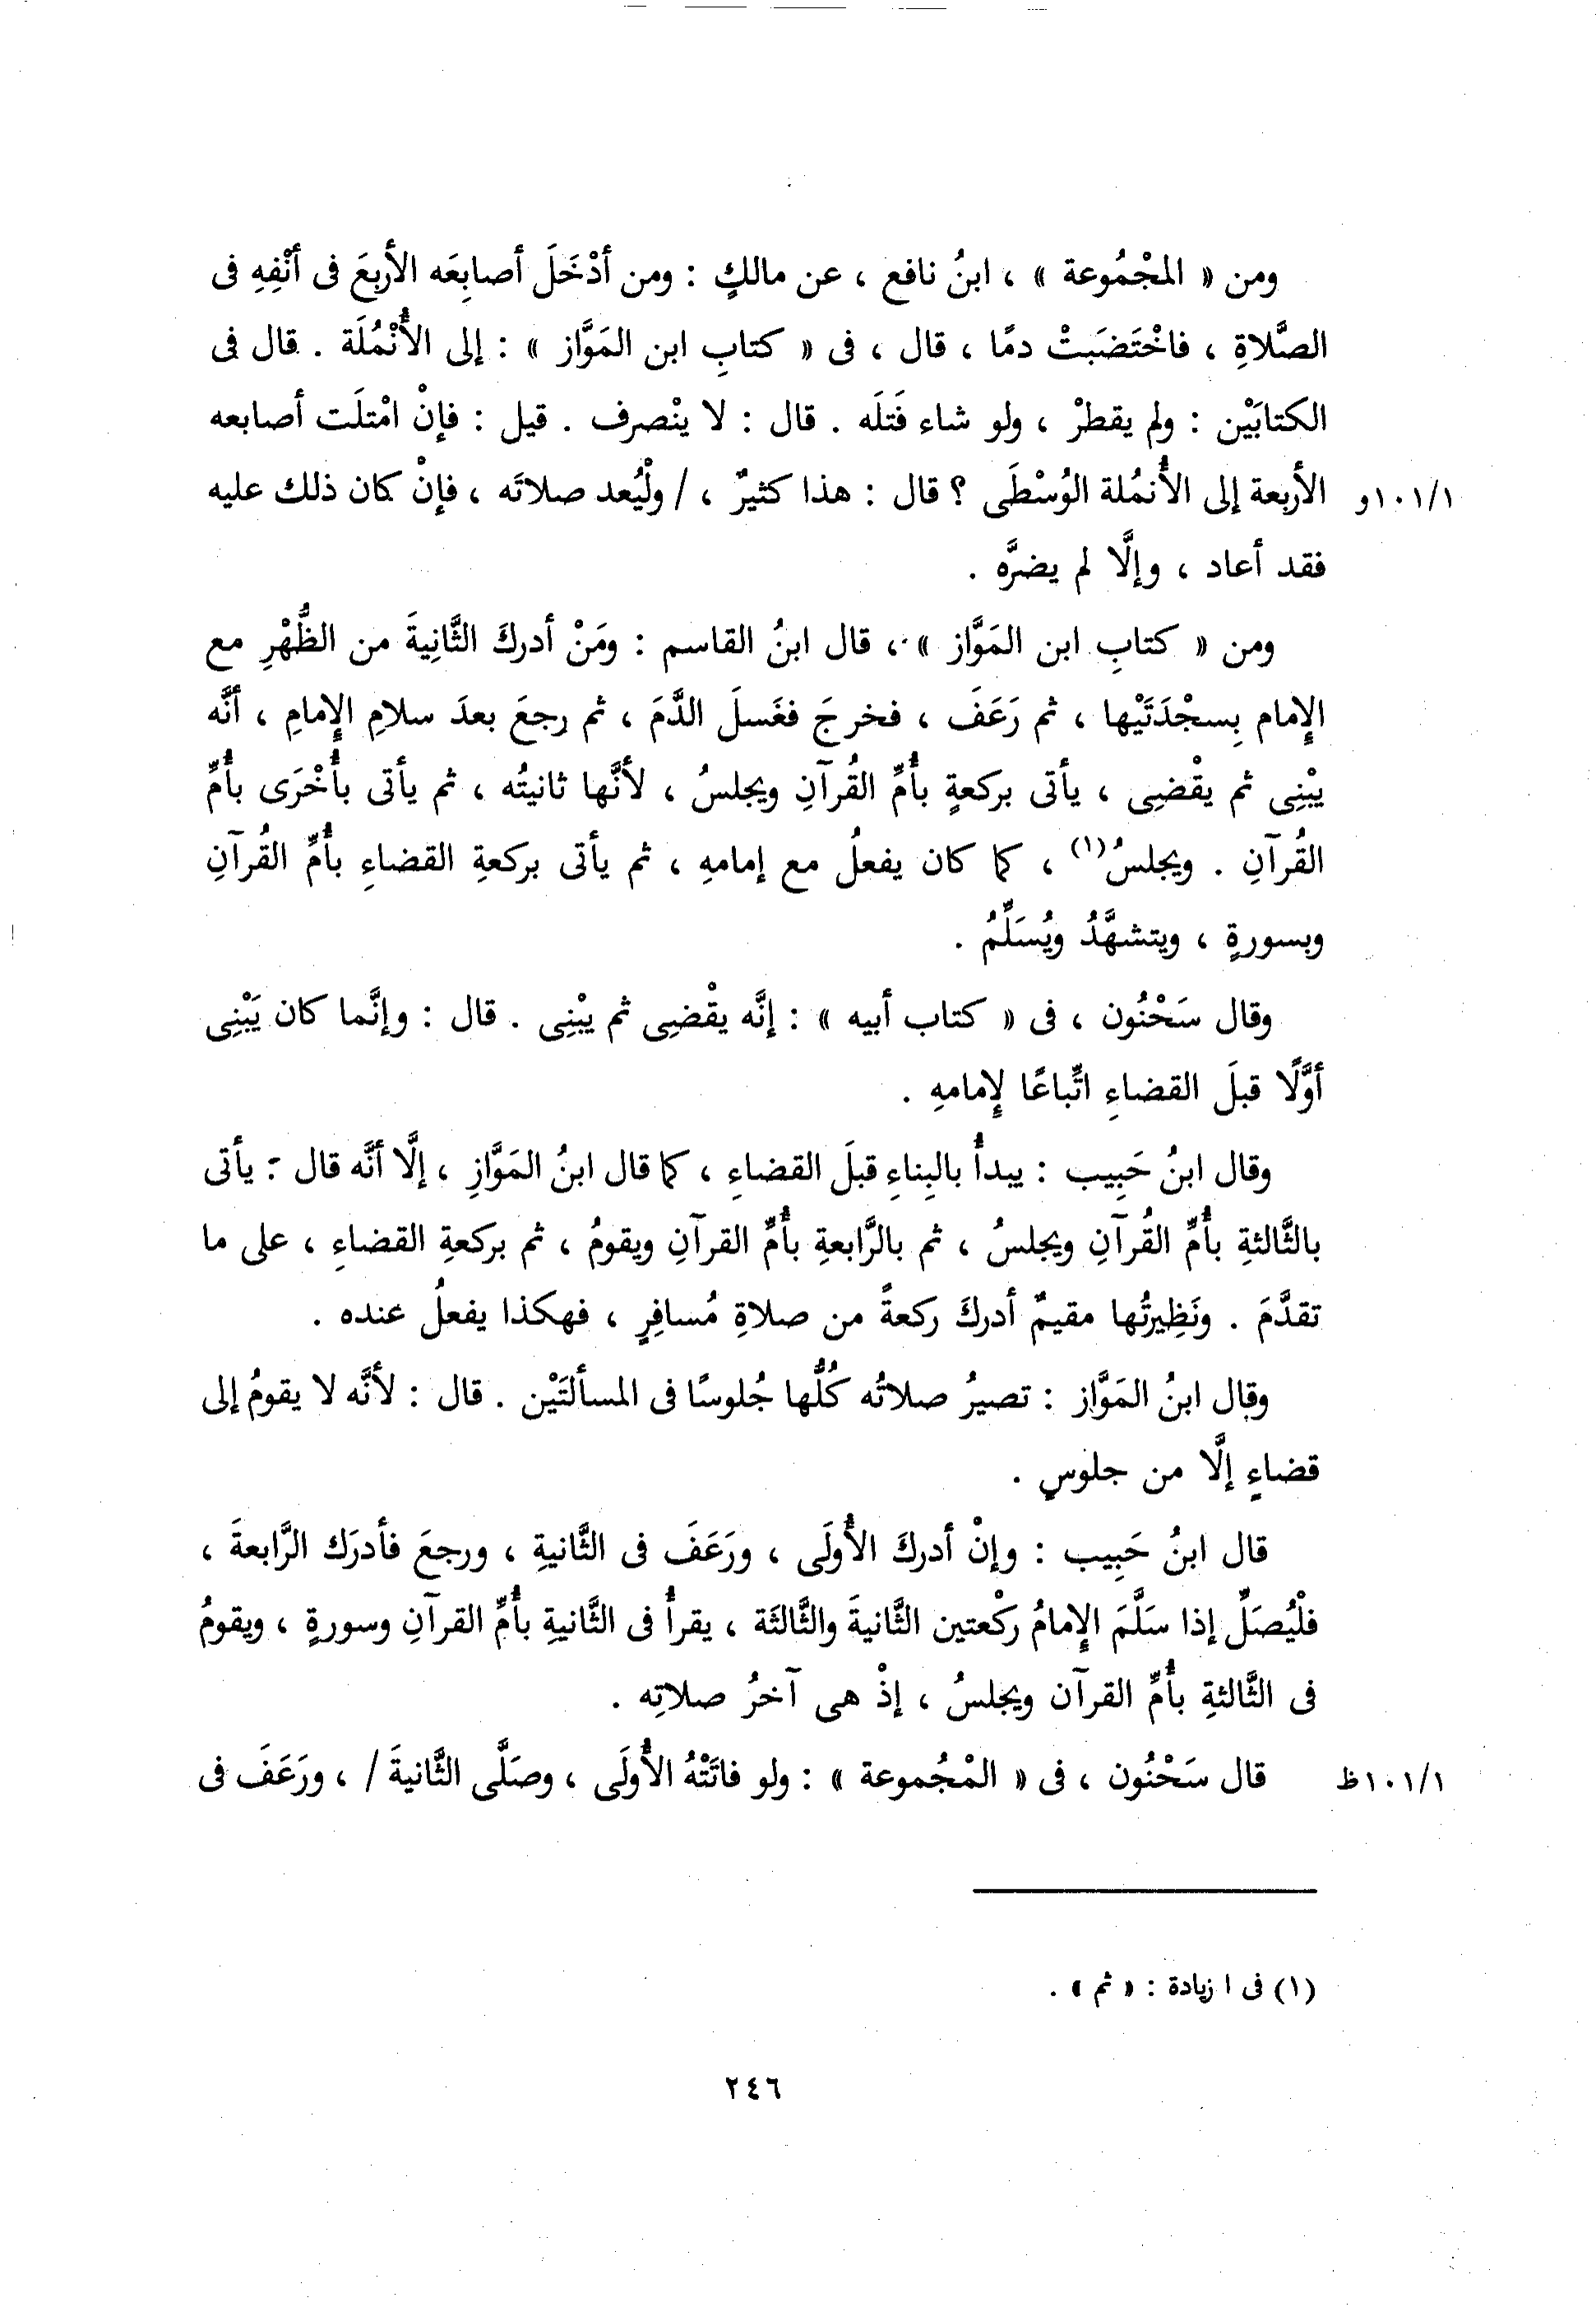 ومن « المجْمُوعة » ، ابنُ نافع ، عن مالكٍ : ومن أدْخَلَ أصابِعَه الأربعَ فى أنْفِهِ فى
الصَّلاةِ ، فاخْتَضَبتْ دمًا ، قال ، فى « كتابِ ابن المَوَّاز » : إلى الأُنْمُلَة . قال فى
الكتابَيْن : ولم يقطرْ ، ولو شاء فَتلَه . قال : لا ينْصرف . قيل : فإنْ امْتلَت أصابعه
الأربعة إلى الأُنمُلة الوُسْطَى ؟ قال : هذا كثيرٌ ، / ولْيُعد صلاتَه ، فإنْ كان ذلك عليه ١/١٠١و
فقد أعاد ، وإلَّا لم يضرَّه .
ومن « كتابِ ابن المَوَّاز » ، قال ابنُ القاسم : ومَنْ أدركَ الثَّانِيةَ من الظُّهْرِ مع
الإِمام بِسجْدَتَيْها ، ثم رَعَفَ ، فخرجَ فغَسلَ الدَّمَ ، ثم رجعَ بعدَ سلامِ الإِمامِ ، أنَّه
يبْنِى ثم يقْضِى ، يأتى بركعةٍ بأُمِّ القُرآنِ ويجلسُ ، لأنَّها ثانيتُه ، ثم يأتى بأُخْرَى بأُمِّ
القُرآنِ . ويجلسُ(١) ، كما كان يفعلُ مع إمامهِ ، ثم يأتى بركعةِ القضاءِ بأُمِّ القُرآنِ
وبسورةٍ ، ويتشهَّدُ ويُسَلِّمُ .
وقال سَحْنُون ، فى « كتاب أبيه » : إنَّه يقْضِى ثم يبْنِى . قال : وإنَّما كان يَبْنِى
أوَّلًا قبلَ القضاءِ اتِّباعًا لإِمامهِ .
وقال ابنُ حَبِيب : يبدأُ بالبِناءِ قبلَ القضاءِ ، كما قال ابنُ المَوَّازِ ، إلَّا أنَّه قال : يأتى
بالثَّالثةِ بأُمِّ القُرآنِ ويجلسُ ، ثم بالرَّابعةِ بأُمِّ القرآنِ ويقومُ ، ثم بركعةِ القضاءِ ، على ما
تقدَّمَ . ونَظِيرتُها مقيمٌ أدركَ ركعةً من صلاةِ مُسافِرٍ ، فهكذا يفعلُ عنده .
وقال ابنُ المَوَّاز : تصيرُ صلاتُه كُلُّها جُلوسًا فى المسألتَيْن . قال : لأنَّه لا يقومُ إلى
قضاءٍ إلَّا من جلوسٍ .
قال ابنُ حَبِيب : وإنْ أدركَ الأُولَى ، ورَعَفَ فى الثَّانيةِ ، ورجعَ فأدرَك الرَّابعةَ ،
فلْيُصَلِّ إذا سَلَّمَ الإِمامُ ركْعتين الثَّانيةَ والثَّالثَة ، يقرأُ فى الثَّانيةِ بأُمِّ القرآنِ وسورةٍ ، ويقومُ
فى الثَّالثةِ بأُمِّ القرآن ويجلسُ ، إذْ هى آخرُ صلاتِه .
قال سَحْنُون ، فى « المْجُموعة » : ولو فاتَتْهُ الأُولَى ، وصَلَّى الثَّانيةَ / ، ورَعَفَ فى ١/١٠١ظ
(١) فى ا زيادة : « ثم » .
٢٤٦